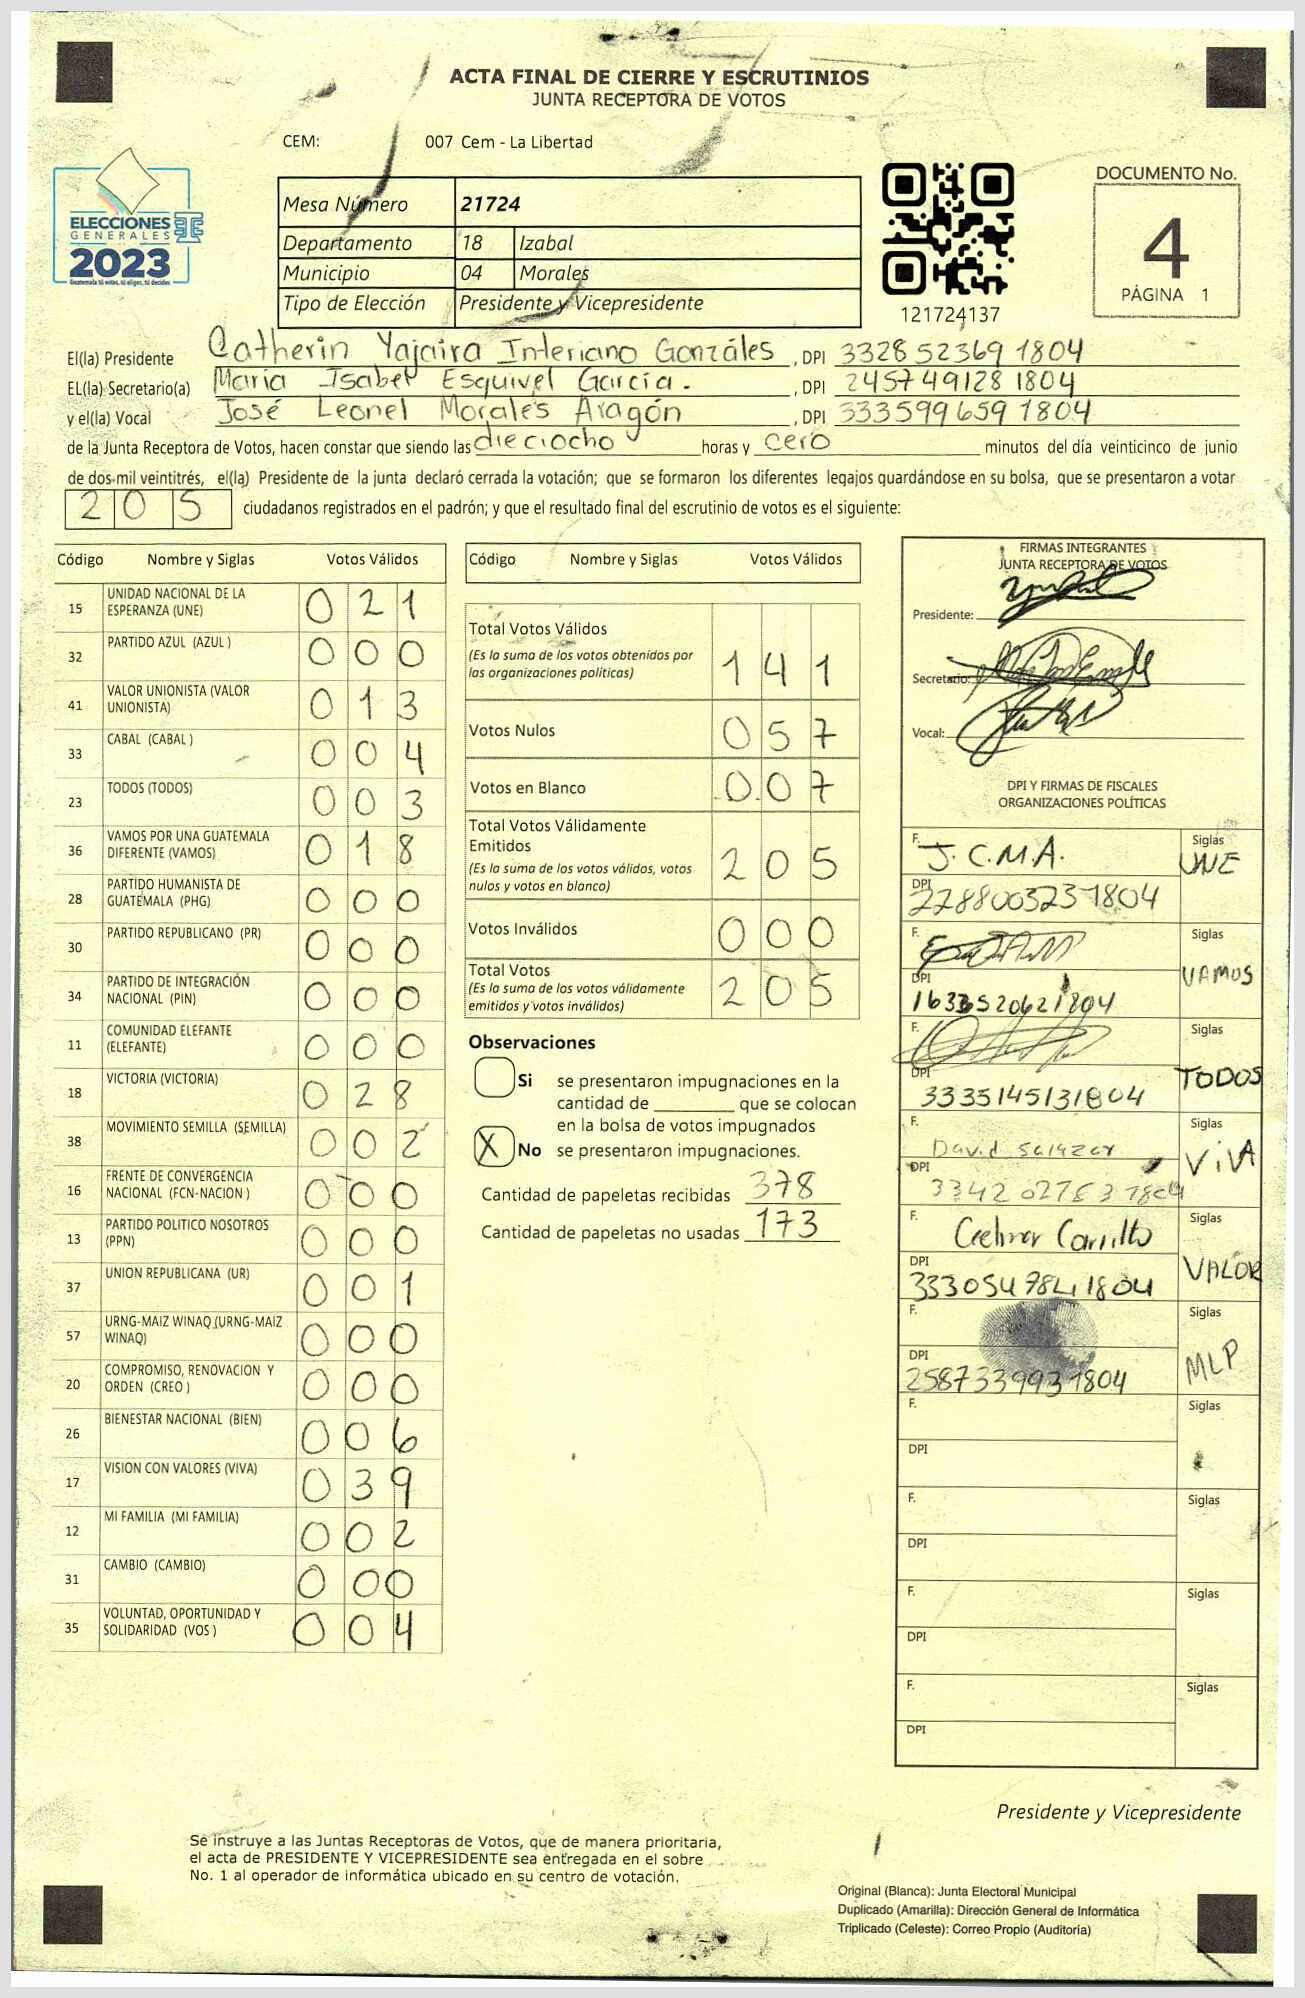 ACTA FINAL DE CIERRE Y ESCRUTINIOS
JUNTA RECEPTORA DE VOTOS
CEM: 007 Cem - La Libertad
ELECCIONES
GENERALES
2023
Guatemala tú votas, tú eliges, tú decides
Mesa Número 21724
Departamento 18 Izabal
Municipio 04 Morales
Tipo de Elección Presidente y Vicepresidente
121724137
DOCUMENTO No.
4
PÁGINA 1
El(la) Presidente Catherin Yajaira Interiano Gonzáles , DPI 3328 52369 1804
EL(la) Secretario(a) María Isabel Esquivel García. , DPI 2457 49128 1804
y el(la) Vocal José Leonel Morales Aragón , DPI 333599659 1804
de la Junta Receptora de Votos, hacen constar que siendo las dieciocho horas y cero minutos del día veinticinco de junio
de dos-mil veintitrés, el(la) Presidente de la junta declaró cerrada la votación; que se formaron los diferentes legajos guardándose en su bolsa, que se presentaron a votar
205 ciudadanos registrados en el padrón; y que el resultado final del escrutinio de votos es el siguiente:
Código Nombre y Siglas Votos Válidos
15 UNIDAD NACIONAL DE LA ESPERANZA (UNE) 021
32 PARTIDO AZUL (AZUL ) 000
41 VALOR UNIONISTA (VALOR UNIONISTA) 013
33 CABAL (CABAL ) 004
23 TODOS (TODOS) 003
36 VAMOS POR UNA GUATEMALA DIFERENTE (VAMOS) 018
28 PARTIDO HUMANISTA DE GUATEMALA (PHG) 000
30 PARTIDO REPUBLICANO (PR) 000
34 PARTIDO DE INTEGRACIÓN NACIONAL (PIN) 000
11 COMUNIDAD ELEFANTE (ELEFANTE) 000
18 VICTORIA (VICTORIA) 028
38 MOVIMIENTO SEMILLA (SEMILLA) 002
16 FRENTE DE CONVERGENCIA NACIONAL (FCN-NACION ) 000
13 PARTIDO POLITICO NOSOTROS (PPN) 000
37 UNION REPUBLICANA (UR) 001
57 URNG-MAIZ WINAQ (URNG-MAIZ WINAQ) 000
20 COMPROMISO, RENOVACION Y ORDEN (CREO ) 000
26 BIENESTAR NACIONAL (BIEN) 006
17 VISION CON VALORES (VIVA) 039
12 MI FAMILIA (MI FAMILIA) 002
31 CAMBIO (CAMBIO) 000
35 VOLUNTAD, OPORTUNIDAD Y SOLIDARIDAD (VOS ) 004
Código Nombre y Siglas Votos Válidos
Total Votos Válidos 141
(Es la suma de los votos obtenidos por
las organizaciones políticas)
Votos Nulos 057
Votos en Blanco 007
Total Votos Válidamente
Emitidos 205
(Es la suma de los votos válidos, votos
nulos y votos en blanco)
Votos Inválidos 000
Total Votos 205
(Es la suma de los votos válidamente
emitidos y votos inválidos)
Observaciones
Si se presentaron impugnaciones en la
cantidad de ________ que se colocan
en la bolsa de votos impugnados
X No se presentaron impugnaciones.
Cantidad de papeletas recibidas 378
Cantidad de papeletas no usadas 173
FIRMAS INTEGRANTES
JUNTA RECEPTORA DE VOTOS
Presidente:
Secretario:
Vocal:
DPI Y FIRMAS DE FISCALES
ORGANIZACIONES POLÍTICAS
F. J.C.M.A. Siglas UNE
DPI 228800323 1804
F. Siglas VAMOS
DPI
F. Siglas TODOS
DPI 3335145131804
F. David Salazar Siglas ViVA
DPI
F. Siglas VALOR
DPI 333054784 1804
F. Siglas MLP
DPI 258733993 1804
F. Siglas
DPI
F. Siglas
DPI
F. Siglas
DPI
F. Siglas
DPI
Presidente y Vicepresidente
Se instruye a las Juntas Receptoras de Votos, que de manera prioritaria,
el acta de PRESIDENTE Y VICEPRESIDENTE sea entregada en el sobre
No. 1 al operador de informática ubicado en su centro de votación.
Original (Blanca): Junta Electoral Municipal
Duplicado (Amarilla): Dirección General de Informática
Triplicado (Celeste): Correo Propio (Auditoría)